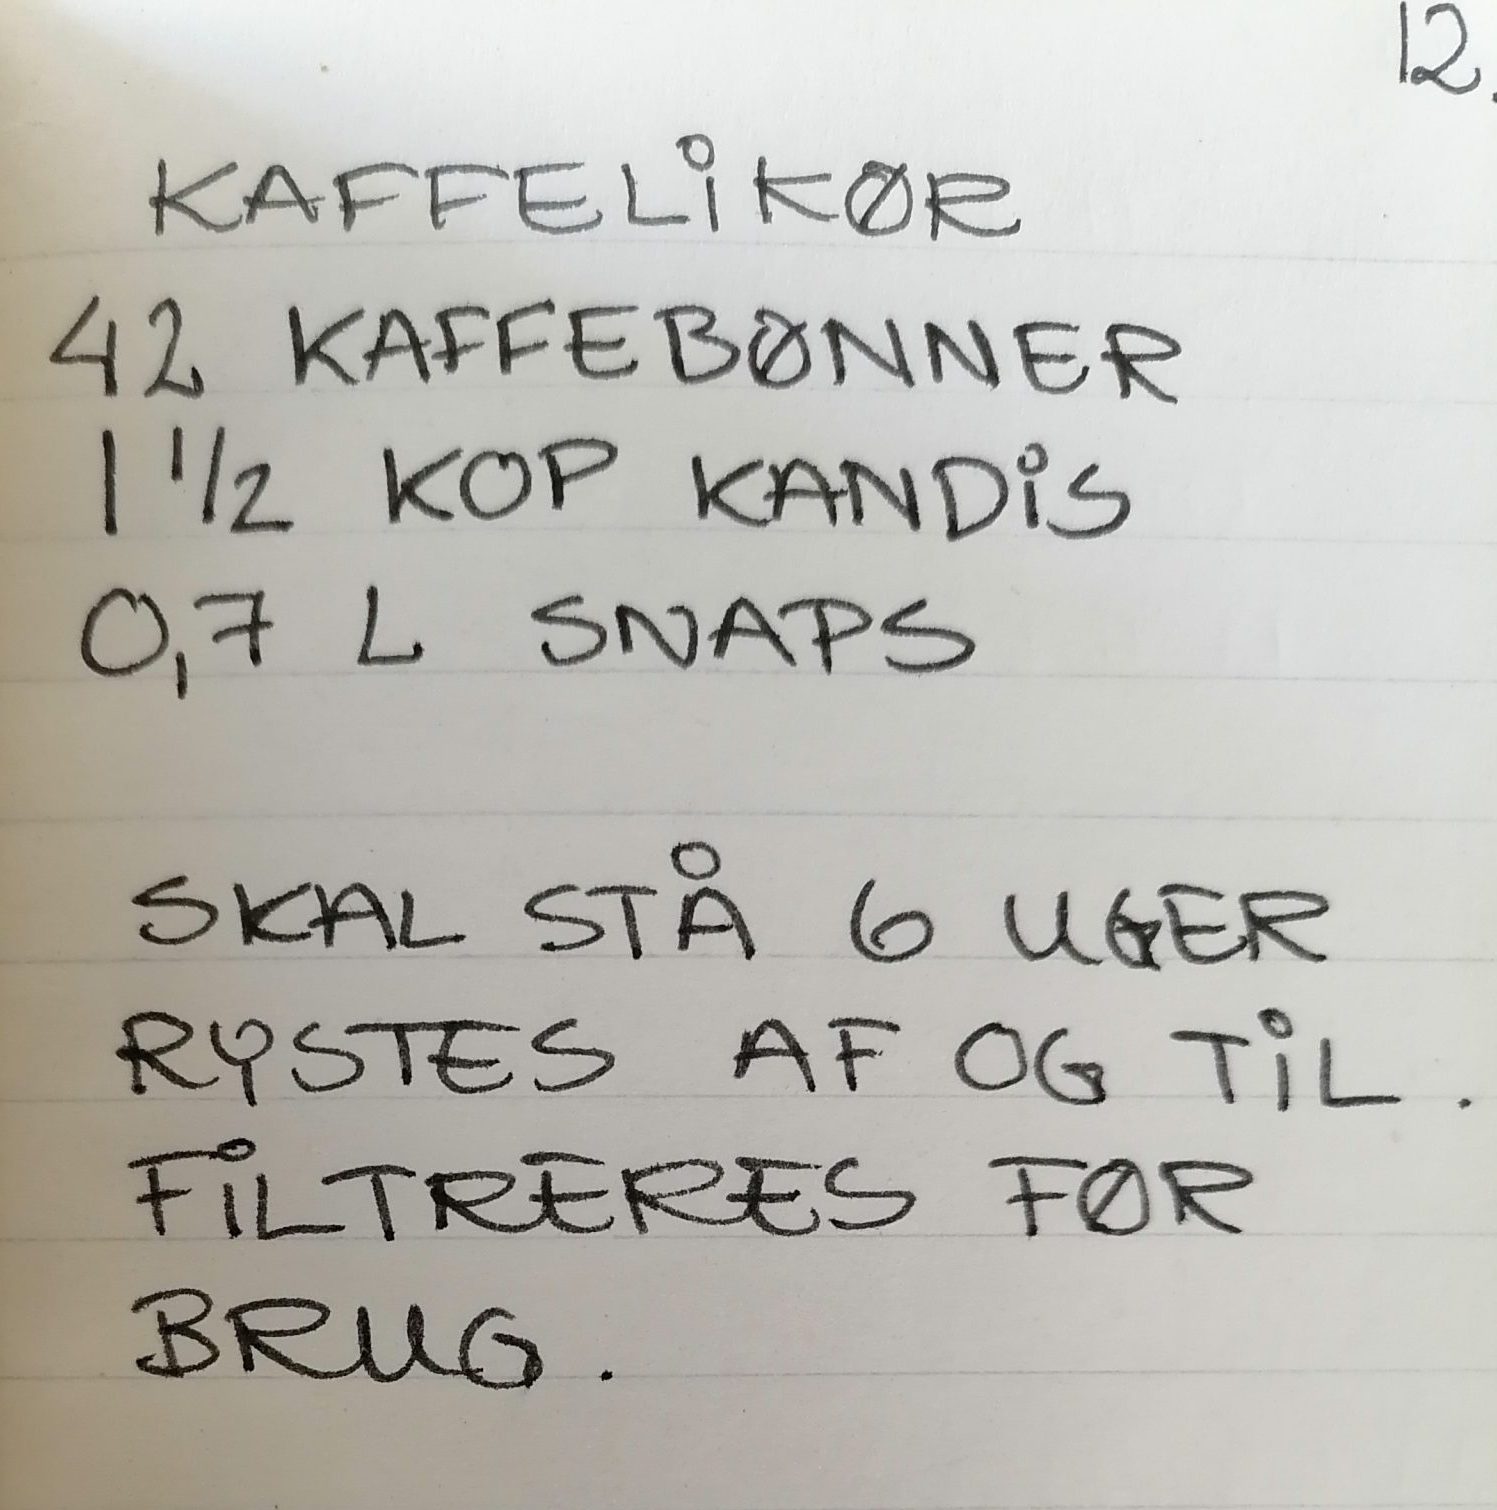 12.
KAFFELiKØR
42 KAFFEBØNNER
1 1/2 KOP KANDiS
0,7 L SNAPS
SKAL STÅ 6 UGER
RYSTES AF OG TiL.
FiLTRERES FØR
BRUG.